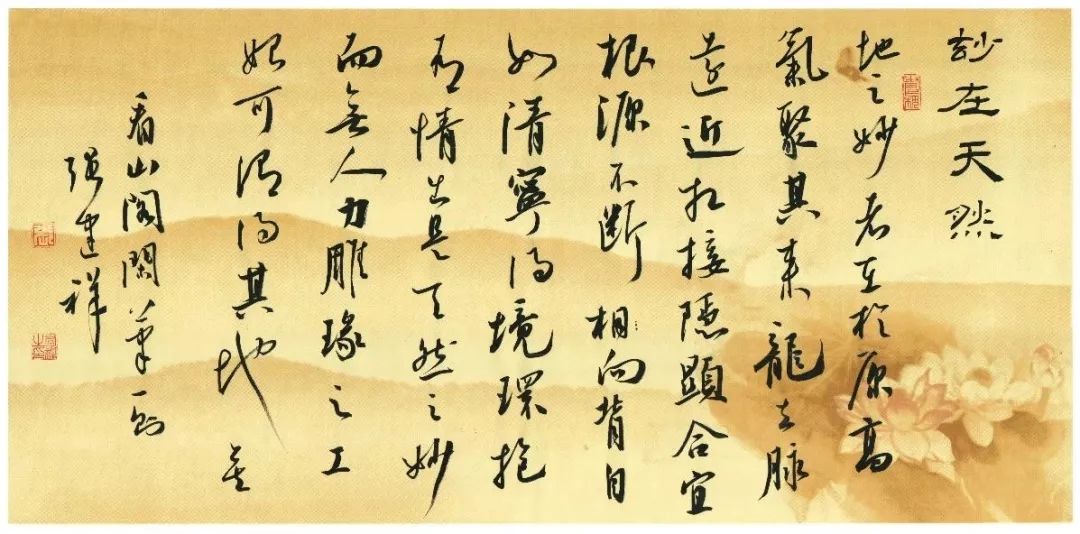 玅在天然
地之妙者在於原高
氣聚其来龍去脉
遠近相接隐顯合宜
根源不断相向背自
如清寧得境環抱
有情出是天然之妙
而無人力雕琢之工
始可谓得其地矣
看山閣閑筆一則
强建祥